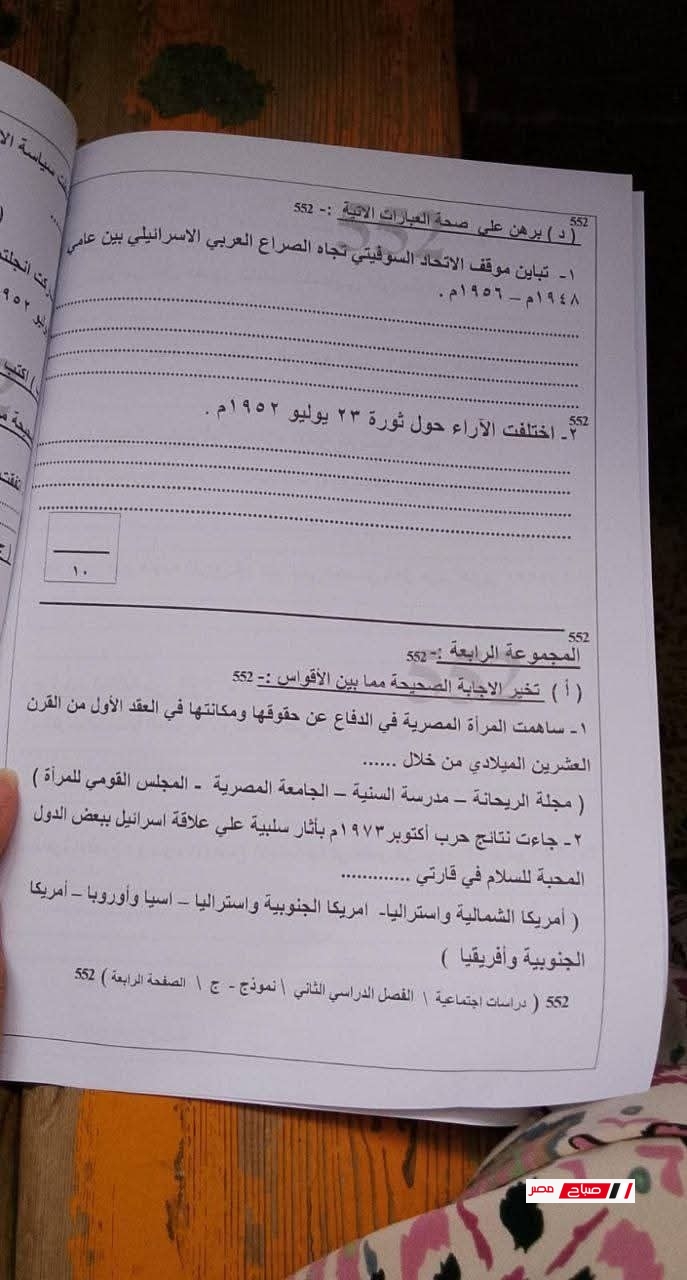 552
( د ) برهن علي صحة العبارات الاتية :- 552
١- تباين موقف الاتحاد السوفيتي تجاه الصراع العربي الاسرائيلي بين عامي
١٩٤٨م – ١٩٥٦م .
552
٢- اختلفت الآراء حول ثورة ٢٣ يوليو ١٩٥٢م .
١٠
552
المجموعة الرابعة :- 552
( أ ) تخير الاجابة الصحيحة مما بين الأقواس :- 552
١- ساهمت المرأة المصرية في الدفاع عن حقوقها ومكانتها في العقد الأول من القرن
العشرين الميلادي من خلال ......
( مجلة الريحانة – مدرسة السنية – الجامعة المصرية - المجلس القومي للمرأة )
٢- جاءت نتائج حرب أكتوبر١٩٧٣م بأثار سلبية علي علاقة اسرائيل ببعض الدول
المحبة للسلام في قارتي .............
( أمريكا الشمالية واستراليا- امريكا الجنوبية واستراليا – اسيا وأوروبا – أمريكا
الجنوبية وأفريقيا )
552 ( دراسات اجتماعية \ الفصل الدراسي الثاني \ نموذج - ج \ الصفحة الرابعة ) 552
صباح مصر